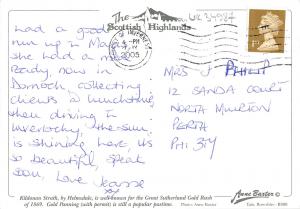 The Scottish Highlands
had a good
run up to Moray
She had a meal
ready, now in
Dornoch, collecting
clients @ lunchtime,
then driving to
Inverlochy, the sun
is shining here, it's
so beautiful, speak
soon, Love
2005
1st
MRS J PHILP
12 SANDA COURT
NORTH MUIRTON
PERTH
PH1 3
Kildonan Strath, by Helmsdale, is well-known for the Great Sutherland Gold Rush
of 1869. Gold Panning (with permit) is still a popular pastime.
Photo: Anne Baxter
Anne Baxter